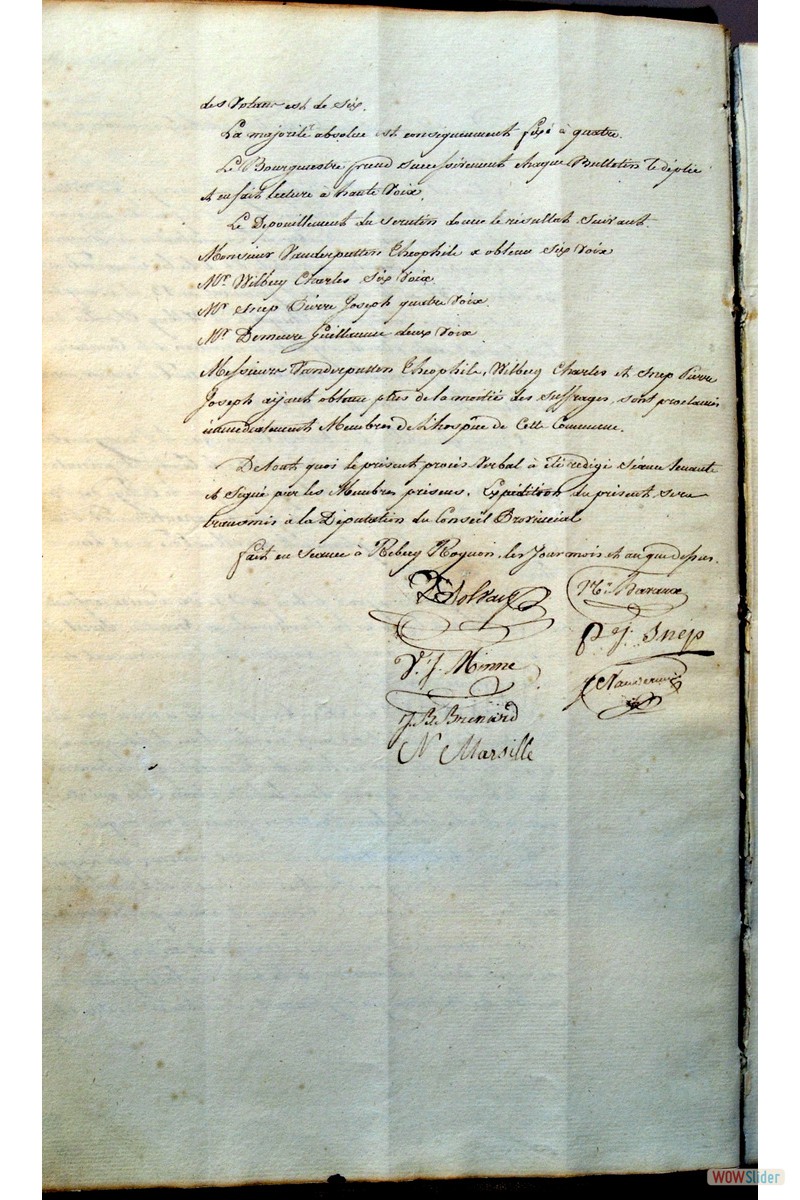 des votans est de Six.
La majorité absolue est conséquemment fixé à quatre.
Le Bourgmestre prend successivement chaque Bulletin le déplie
et en fait lecture à haute Voix.
Le Dépouillement du scrutin donne le résultat suivant.
Monsieur Vanderputten Théophile a obtenu Six Voix
Mr Wilbecq Charles Six Voix
Mr Snep Pierre Joseph quatre Voix
Mr Demeure Guillaume deux Voix
Messieurs Vanderputten Théophile, Wilbecq Charles et Snep Pierre
Joseph aÿant obtenu plus de la moitié des suffrages, sont proclamés
immédiatement Membres de L'hospice de Cette Commune.
De tout quoi le présent procès Verbal à été rédigé Séance tenante
et Signé par les Membres présens. Expédition du présent sera
transmis à la Députation du Conseil Provincial
fait en Séance à Rebecq Rognon, les Jour mois et an que dessus.
P. J. Snép
V. J. Minne
J B Brenard
N Marsille
WOWSlider